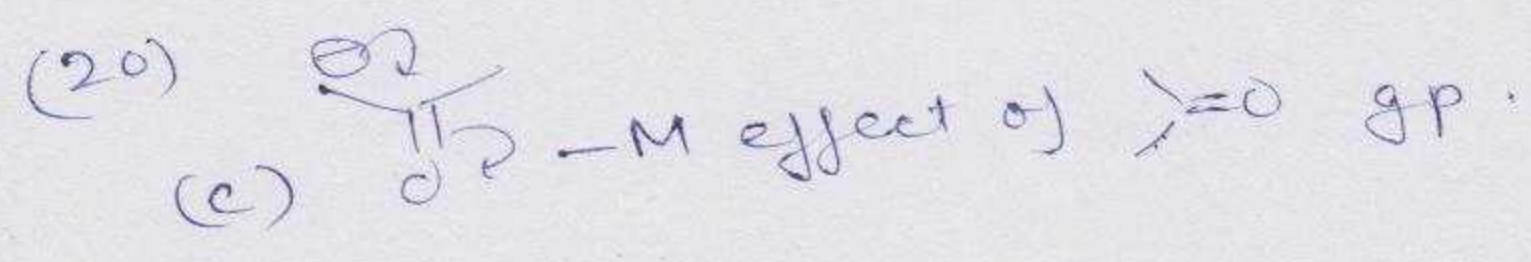 (20) ⊖
–M effect of >=O gp.
(c) O